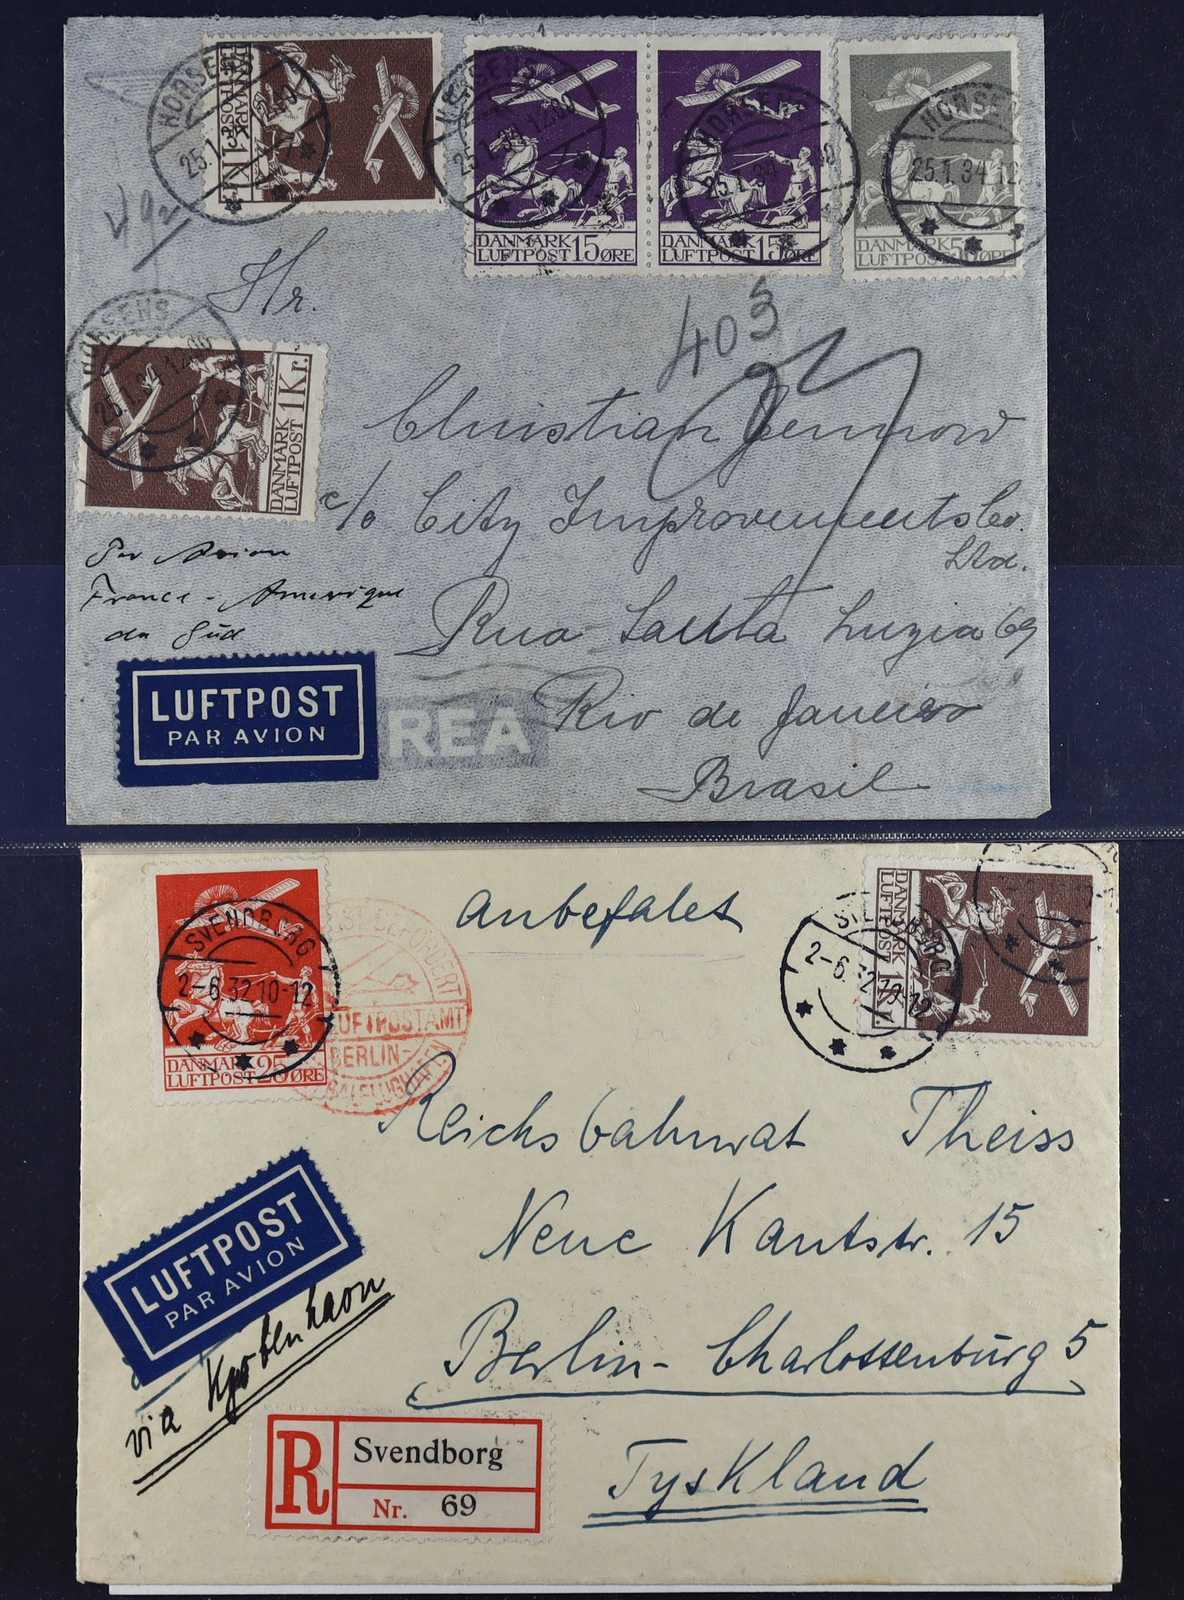 HORSENS
25.1.34 12.00
DANMARK
LUFTPOST 1 Kr.
HORSENS
25.1.34 12.00
DANMARK
LUFTPOST 15 ØRE
HORSENS
25.1.34
DANMARK
LUFTPOST 15 ØRE
HORSENS
25.1.34 12
DANMARK
LUFTPOST 50 ØRE
Hr.
403
HORSENS
25.1.34 12.00
DANMARK
LUFTPOST 1 Kr.
c/o City Improvements Co.
Ltd.
Par Avion
France - Amerique
du Sud
Rua Santa Luzia 69
Rio de Janeiro
Brasil
LUFTPOST
PAR AVION
REA
Anbefalet
SVENDBORG
2-6.32 10-12
DANMARK
LUFTPOST 25 ØRE
BEFÖRDERT
LUFTPOSTAMT
BERLIN-
SVENDBORG
2-6.32 10-12
DANMARK
LUFTPOST 1 Kr.
Reichsbahnrat Theiss
Neue Kantstr. 15
Berlin-Charlottenburg 5
Tyskland
LUFTPOST
PAR AVION
via Kjøbenhavn
R
Svendborg
Nr. 69